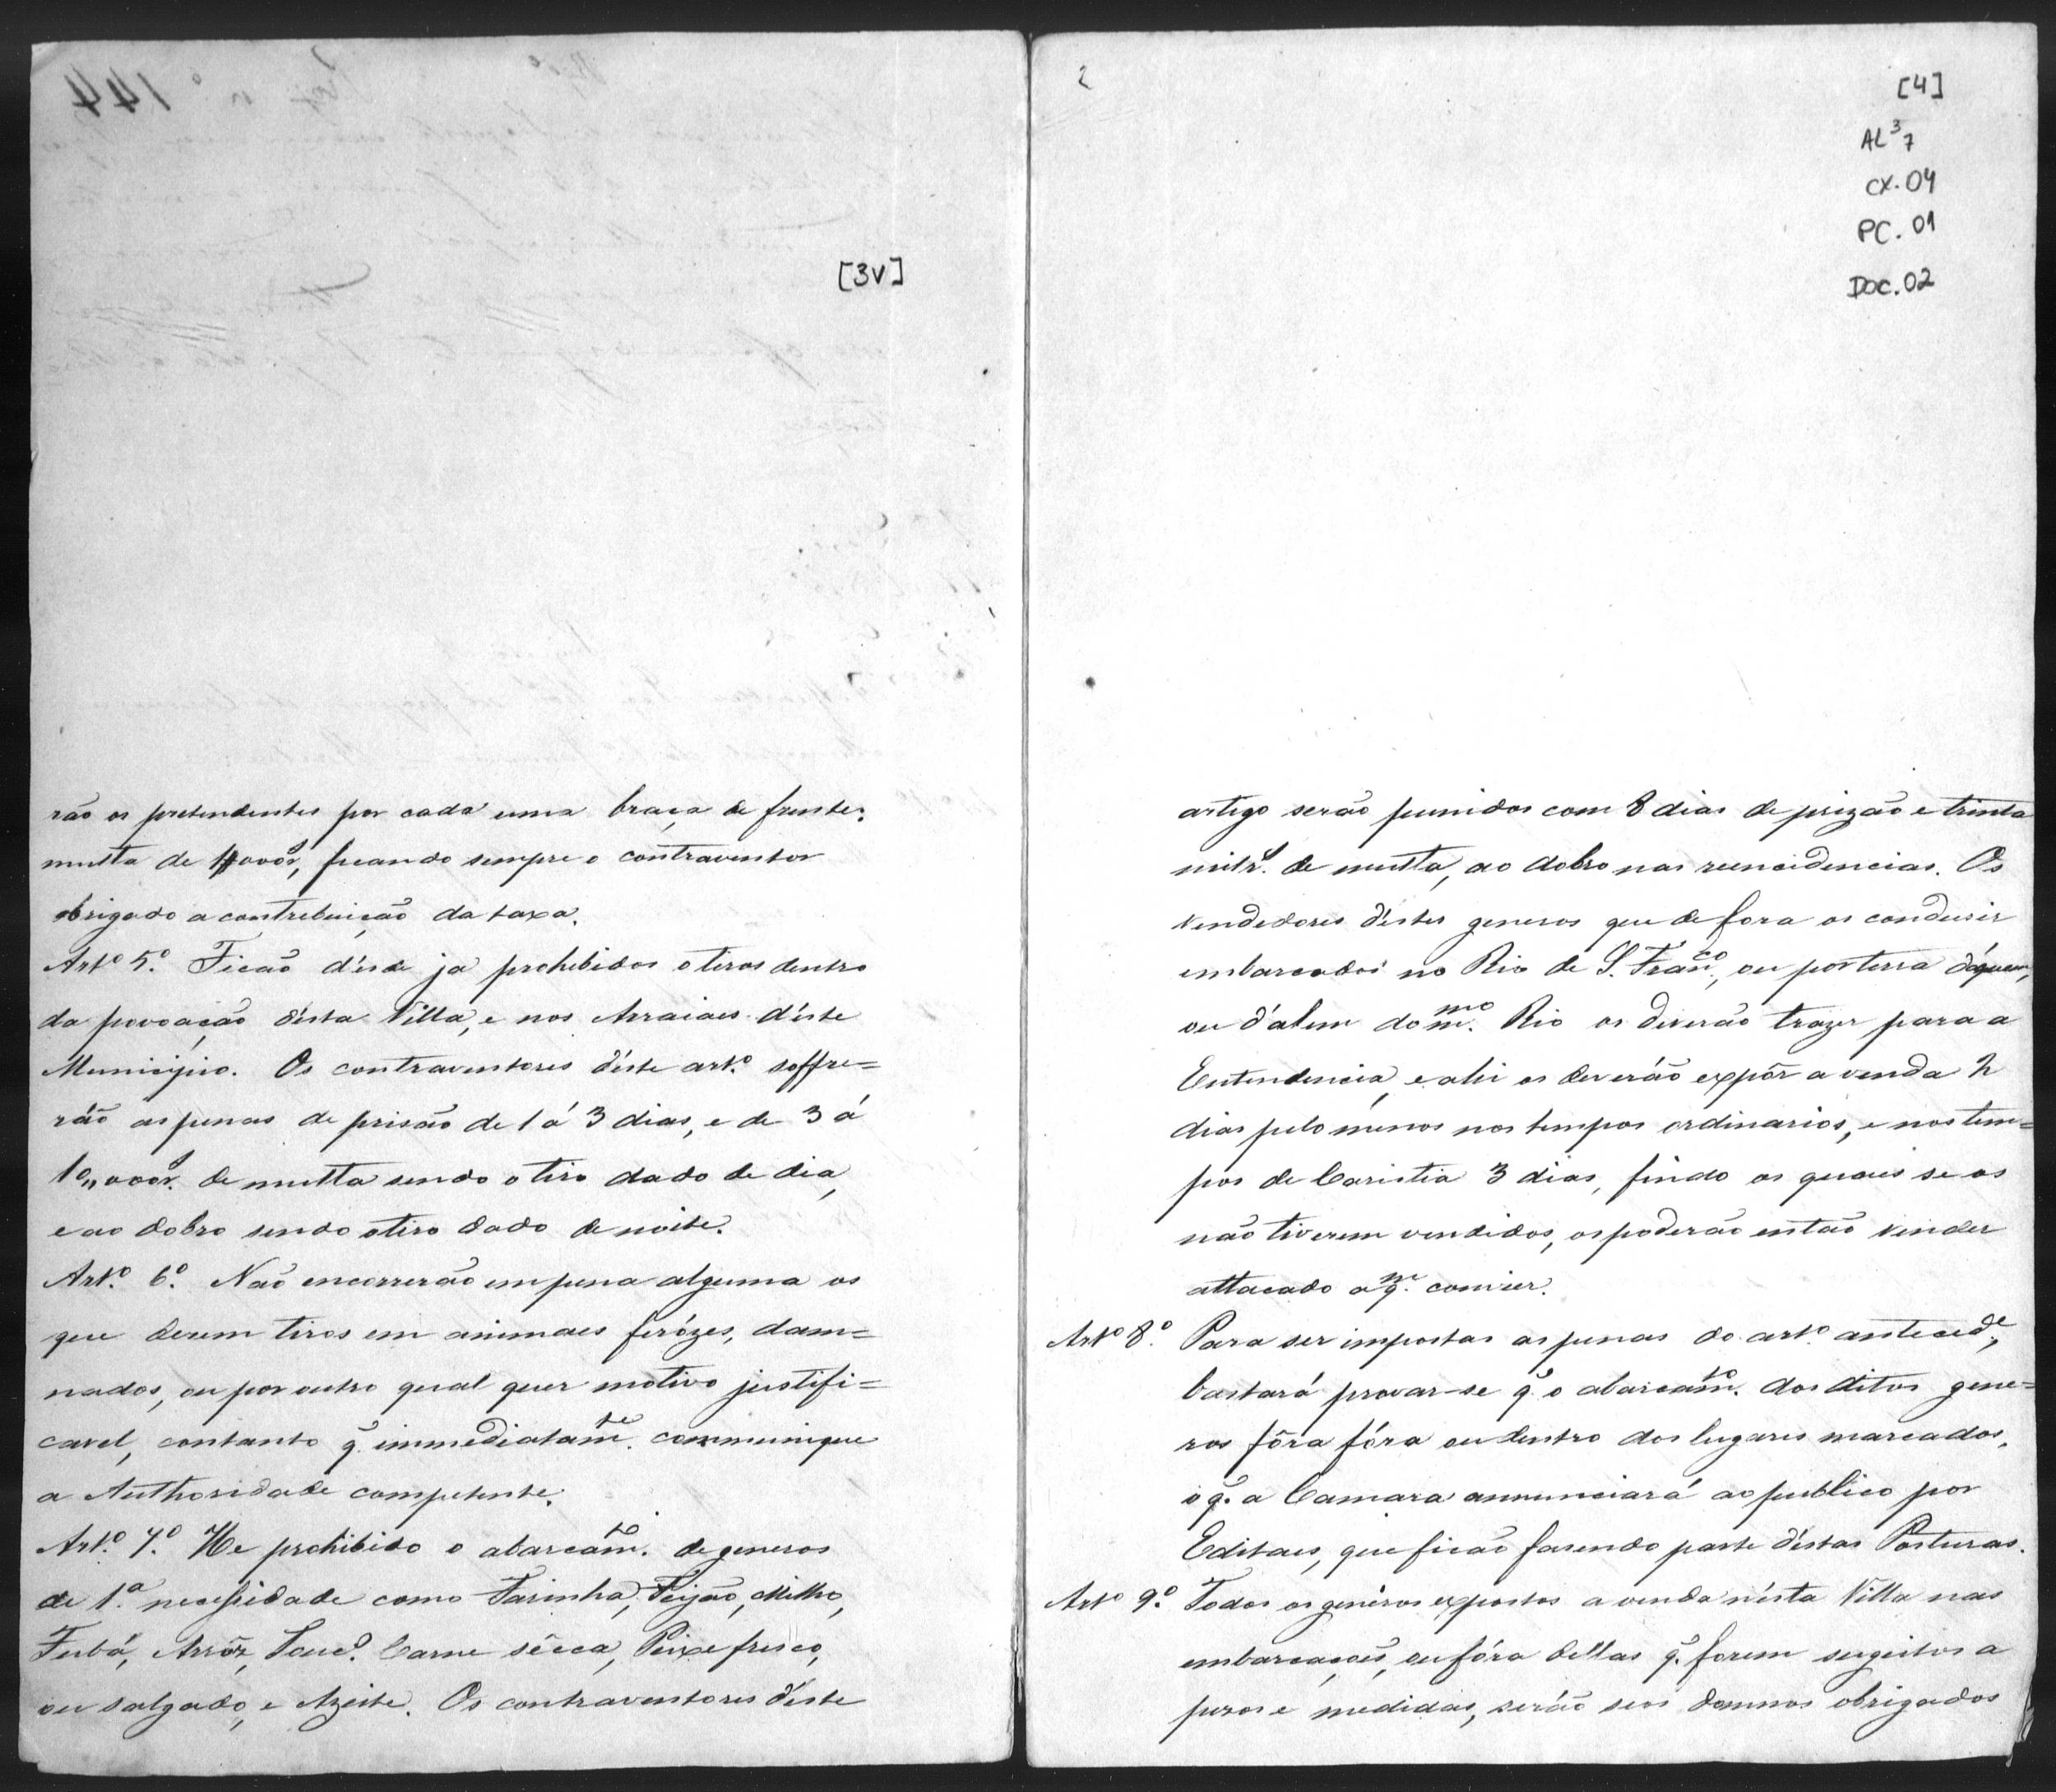 [3v]
rão os pretendentes por cada uma braça de frente:
multa de 4$000r.s, ficando sempre o contraventor
obrigado a contrebuição da taxa.
Art.º 5.º Ficão d'ésde ja prohibidos o tiros dentro
da povoação désta Villa, e nos Arraiaes d'éste
Municipio. Os contraventores déste art.º soffre=
rão as penas de prisão de 1 á 3 dias, e de 3 á
10,,000r.s de multa sendo o tiro dado de dia,
e ao dobro sendo o tiro dado de noite.
Art.º 6.º Não encorrerão em pena alguma os
que derem tiros em animaes ferózes, dam=
nados, ou por outro qual quer motivo justifi=
cavel, contanto q̃. immediatam.te communique
a Authoridade competente.
Art.º 7.º He prohibido o abarcam.to de generos
de 1.ª necessidade como Farinha, Feijão, Milho,
Fubá, Arrôz, Touc.º Carne sêcca, Peixe fresco,
ou salgado, e Azeite. Os contraventores déste
2
[4]
AL³7
CX.04
PC.01
DOC.02
artigo serão punidos com 8 dias de prizão e trinta
milr.s de multa, ao dobro nas reencidencias. Os
vendedores déstes generos que de fora os condusir
embarcados no Rio de S. Fran.co, ou por terra dáquem,
ou d'alem do m.mo Rio os deverão trazer para a
Entendencia, e ahi os deverão expôr a venda 2
dias pelo menos nos tempos ordinarios, e nos tem=
pos de Caristia 3 dias, findo os quaes se os
não tiverem vendidos, os poderão então vender
attacado a q.m convier.
Art.º 8.º Para ser impostas as penas do art.º anteced.e,
bastará provar-se q̃ o abarcam.to dos ditos gene=
ros fôra fóra ou dentro dos lugares marcados,
o q̃. a Camara annunciará ao publico por
Editaes, que ficão fasendo parte déstas Posturas.
Art.º 9.º Todos os genéros expostos a venda nésta Villa nas
embarcações, ou fóra dellas q̃. forem sugeitos a
pezos e medidas, serão seos donnos obrigados